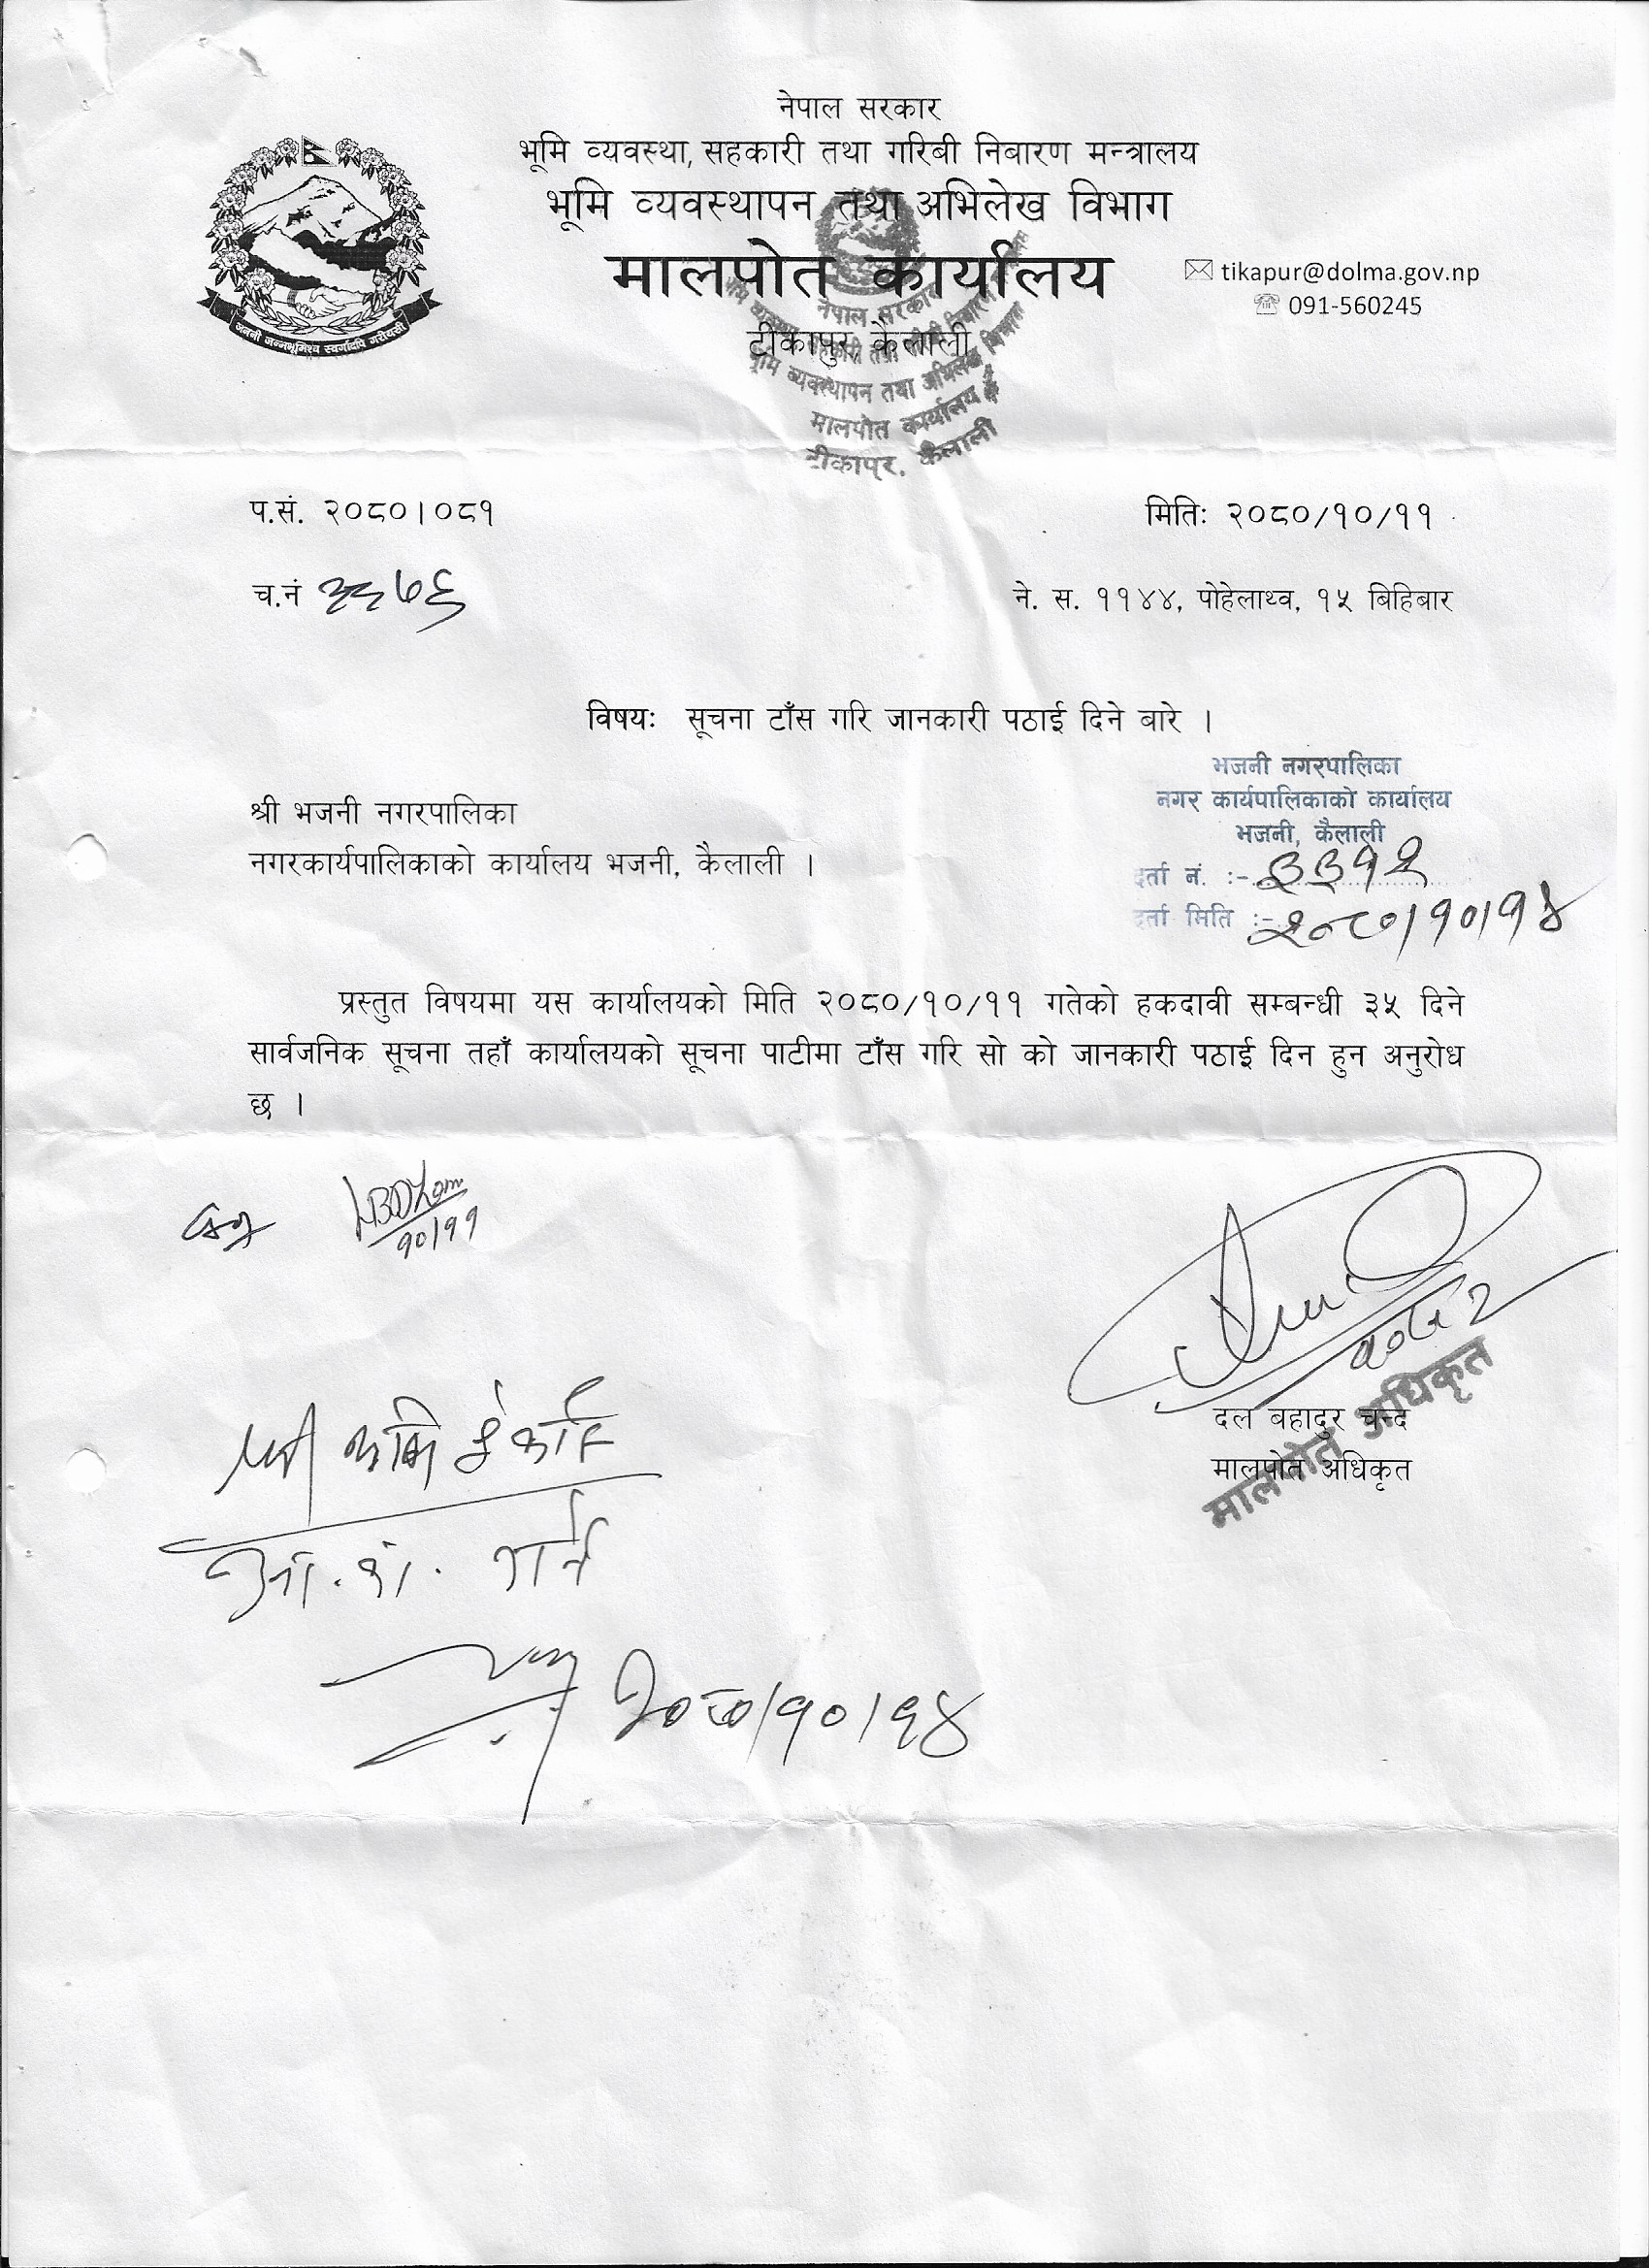 नेपाल सरकार
भूमि व्यवस्था, सहकारी तथा गरिबी निबारण मन्त्रालय
भूमि व्यवस्थापन तथा अभिलेख विभाग
मालपोत कार्यालय
टीकापुर, कैलाली
tikapur@dolma.gov.np
091-560245
जननी जन्मभूमिश्च स्वर्गादपि गरीयसी
नेपाल सरकार
भूमि व्यवस्थापन तथा अभिलेख विभाग
मालपोत कार्यालय
टीकापुर, कैलाली
प.सं. २०८०।०८१
मितिः २०८०/१०/११
च.नं
ने. स. ११४४, पोहेलाथ्व, १५ बिहिबार
विषयः सूचना टाँस गरि जानकारी पठाई दिने बारे ।
भजनी नगरपालिका
नगर कार्यपालिकाको कार्यालय
भजनी, कैलाली
दर्ता नं. :- ३३१२
दर्ता मिति :- २०८०।१०।१४
श्री भजनी नगरपालिका
नगरकार्यपालिकाको कार्यालय भजनी, कैलाली ।
प्रस्तुत विषयमा यस कार्यालयको मिति २०८०/१०/११ गतेको हकदावी सम्बन्धी ३५ दिने
सार्वजनिक सूचना तहाँ कार्यालयको सूचना पाटीमा टाँस गरि सो को जानकारी पठाई दिन हुन अनुरोध
छ ।
१०।११
दल बहादुर चन्द
मालपोत अधिकृत
मालपोत अधिकृत
२०८०।१०।१४